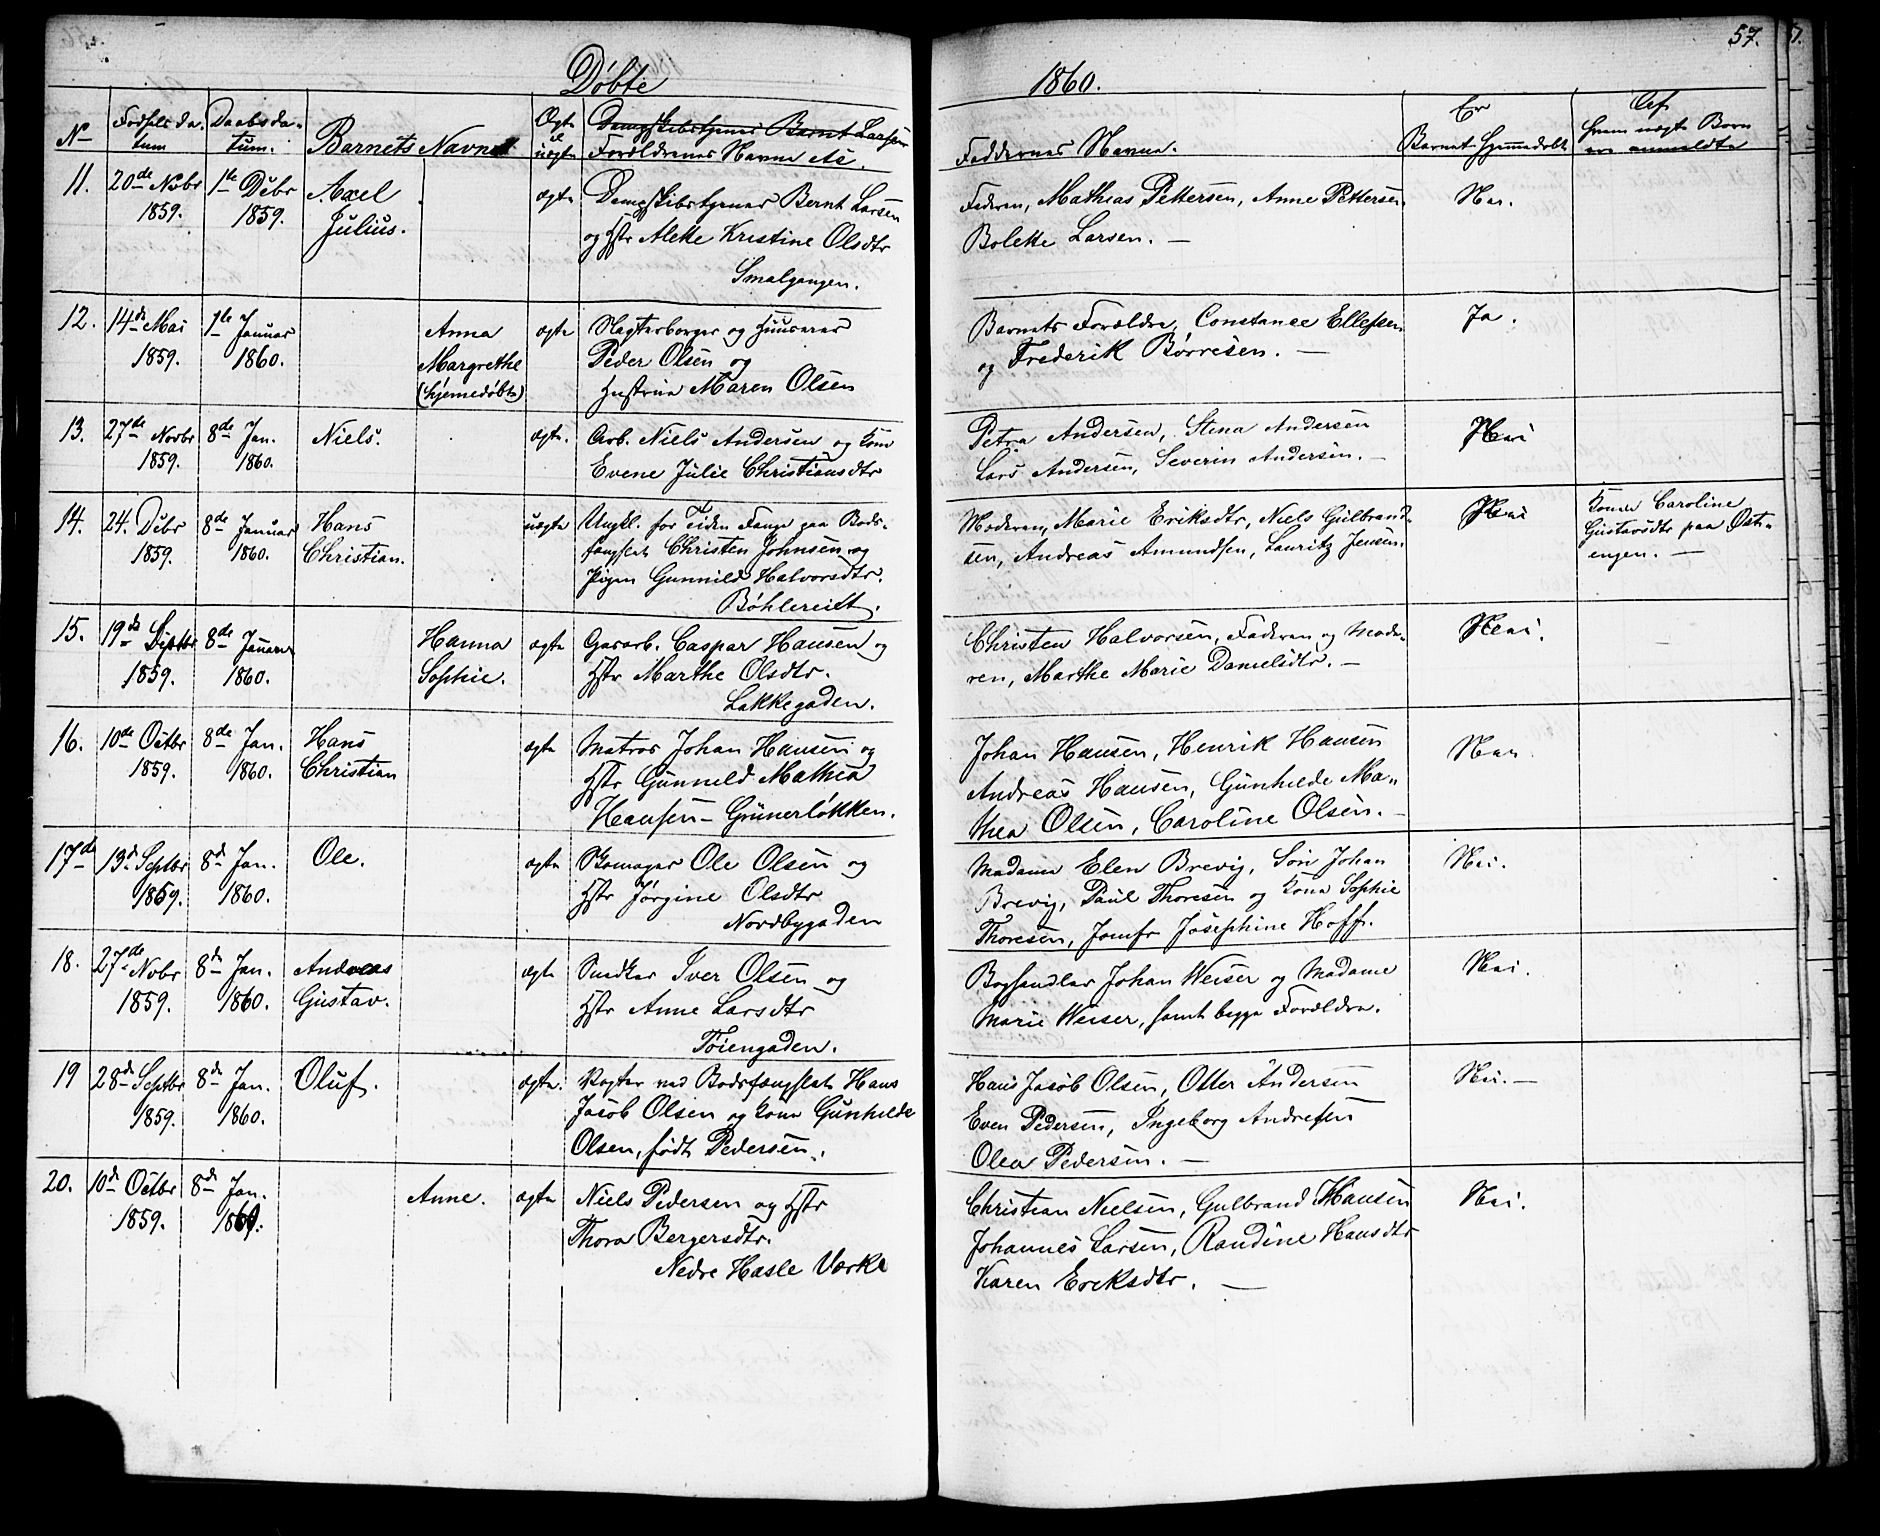 Døbte
1860.
57.
No
Fødsels da-
tum
Daabsda-
tum.
Barnets Navne
Ægte
el
uægte
Dampskibstjener Bernt Larsen
Forældrenes Navne &c.
Faddernes Navne.
Er
Barnet hjemmedøbt
Af
hvem uægte Børn
ere anmeldte
11.
20de Nobr
1859.
1te Debr
1859.
Axel
Julius.
ægte
Dampskibstjener Bernt Larsen
og Hstr Alette Kristine Olsdtr
Smalgangen.
Faderen, Mathias Pettersen, Anne Pettersen
Bolette Larsen. —
Nei.
12.
14de Mai
1859.
1te Januar
1860.
Anna
Margrethe
(hjemedøbt)
ægte
Slagterborger og Huuseier
Peder Olsen og
Hustrue Maren Olsen
Barnets Forældre, Constance Ellefsen
og Frederik Børresen. —
Ja.
13.
27de Novbr
1859.
8de Jan.
1860.
Niels.
ægte.
Arb. Niels Andersen og Kone
Evene Julie Christiansdtr
Petra Andersen, Stena Andersen
Lars Andersen, Severin Andersen. —
Nei
14.
24. Debr
1859.
8de Januar
1860.
Hans
Christian.
uægte
Ungkl. for Tiden Fange paa Bods-
fængslet Christen Johnsen og
Pigen Gunnild Halvorsdtr.
Bøhlereiet.
Moderen, Marie Eriksdtr, Niels Gulbrand-
sen, Andreas Amundsen, Lauritz Jensen.
Nei
Konen Caroline
Gustavsdtr paa Øst-
engen. —
15.
19de Septbr
1859.
8de Januar
1860.
Hanna
Sophie.
ægte
Gaarb. Caspar Hansen og
Hstr Marthe Olsdtr.
Lakkegaden.
Christen Halvorsen, Faderen og Mode-
ren, Marthe Marie Danielsdtr. —
Nei.
16.
10de Octbr
1859.
8de Jan.
1860.
Hans
Christian
ægte
Matros Johan Hansen og
Hstr Gunnild Mathea
Hansen – Grünerløkken.
Johan Hansen, Henrik Hansen
Andreas Hansen, Gunhilde Ma-
thea Olsen, Caroline Olsen. —
Nei
17de
13de Septbr
1859.
8de Jan.
1860.
Ole.
ægte
Skomager Ole Olsen og
Hstr Jørgine Olsdtr
Nordbygaden
Madame Elen Brevig, Søn Johan
Brevig, Paul Thoresen og Kone Sophie
Thoresen, Jomfr Josephine Hoff.
Nei.
18.
27de Nobr
1859.
8de Jan.
1860.
Andreas
Gustav.
ægte
Snedker Iver Olsen og
Hstr Anne Larsdtr
Tøiengaden.
Boghandler Johan Weiser og Madame
Marie Weiser, samt begge Forældre.
Nei.
19
28de Septbr
1859.
8de Jan.
1860.
Oluf.
ægte.
Vogter ved Bodsfængslet Hans
Jacob Olsen og Kone Gunhilde
Olsen, født Pedersen.
Hans Jacob Olsen, Otter Andersen
Even Pedersen, Ingeborg Andresen
Olea Pedersen. —
Nei. —
20.
10de Octbr
1859.
8de Jan.
1860.
Anne.
ægte
Niels Pedersen og Hstr
Thora Bergersdtr.
Nedre Hasle Værk
Christian Nielsen, Gulbrand Hansen
Johannes Larsen, Randine Hansdtr
Karen Eriksdtr. —
Nei.